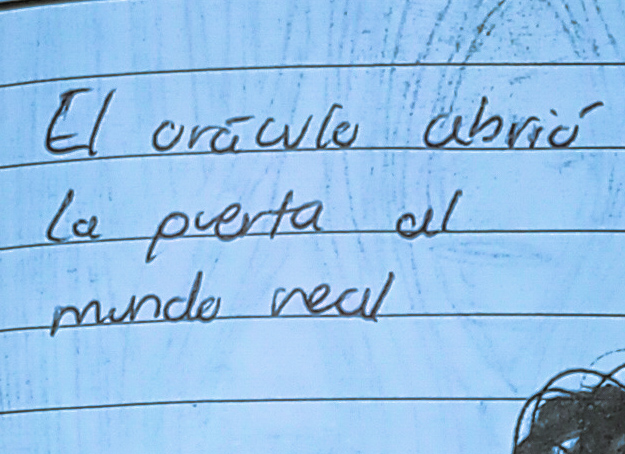 El oráculo abrió
la puerta al
mundo real